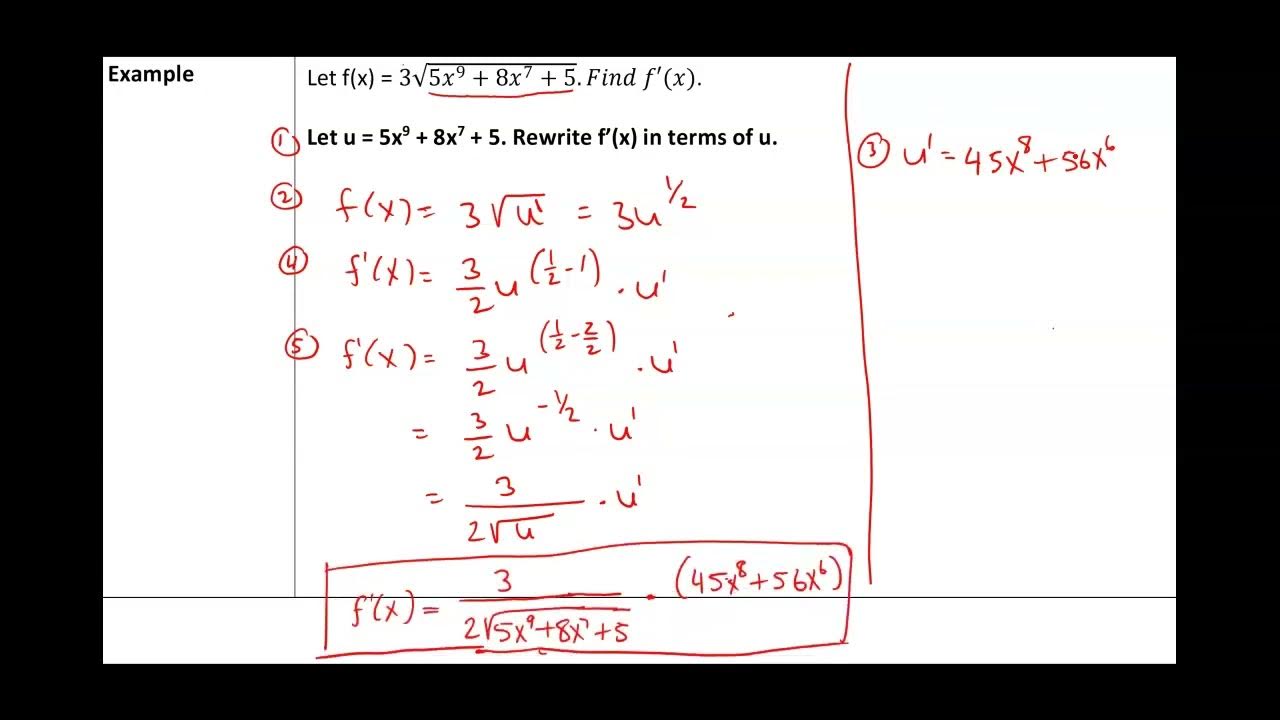 Example
Let f(x) = 3√(5x⁹ + 8x⁷ + 5). Find f′(x).
① Let u = 5x⁹ + 8x⁷ + 5. Rewrite f’(x) in terms of u.
② f(x) = 3√u' = 3u^(1/2)
④ f'(x) = 3/2 u^(1/2 - 1) · u'
⑤ f'(x) = 3/2 u^(1/2 - 2/2) · u'
= 3/2 u^(-1/2) · u'
= 3/(2√u) · u'
f'(x) = 3/(2√(5x⁹+8x⁷+5)) · (45x⁸+56x⁶)
③ u' = 45x⁸ + 56x⁶